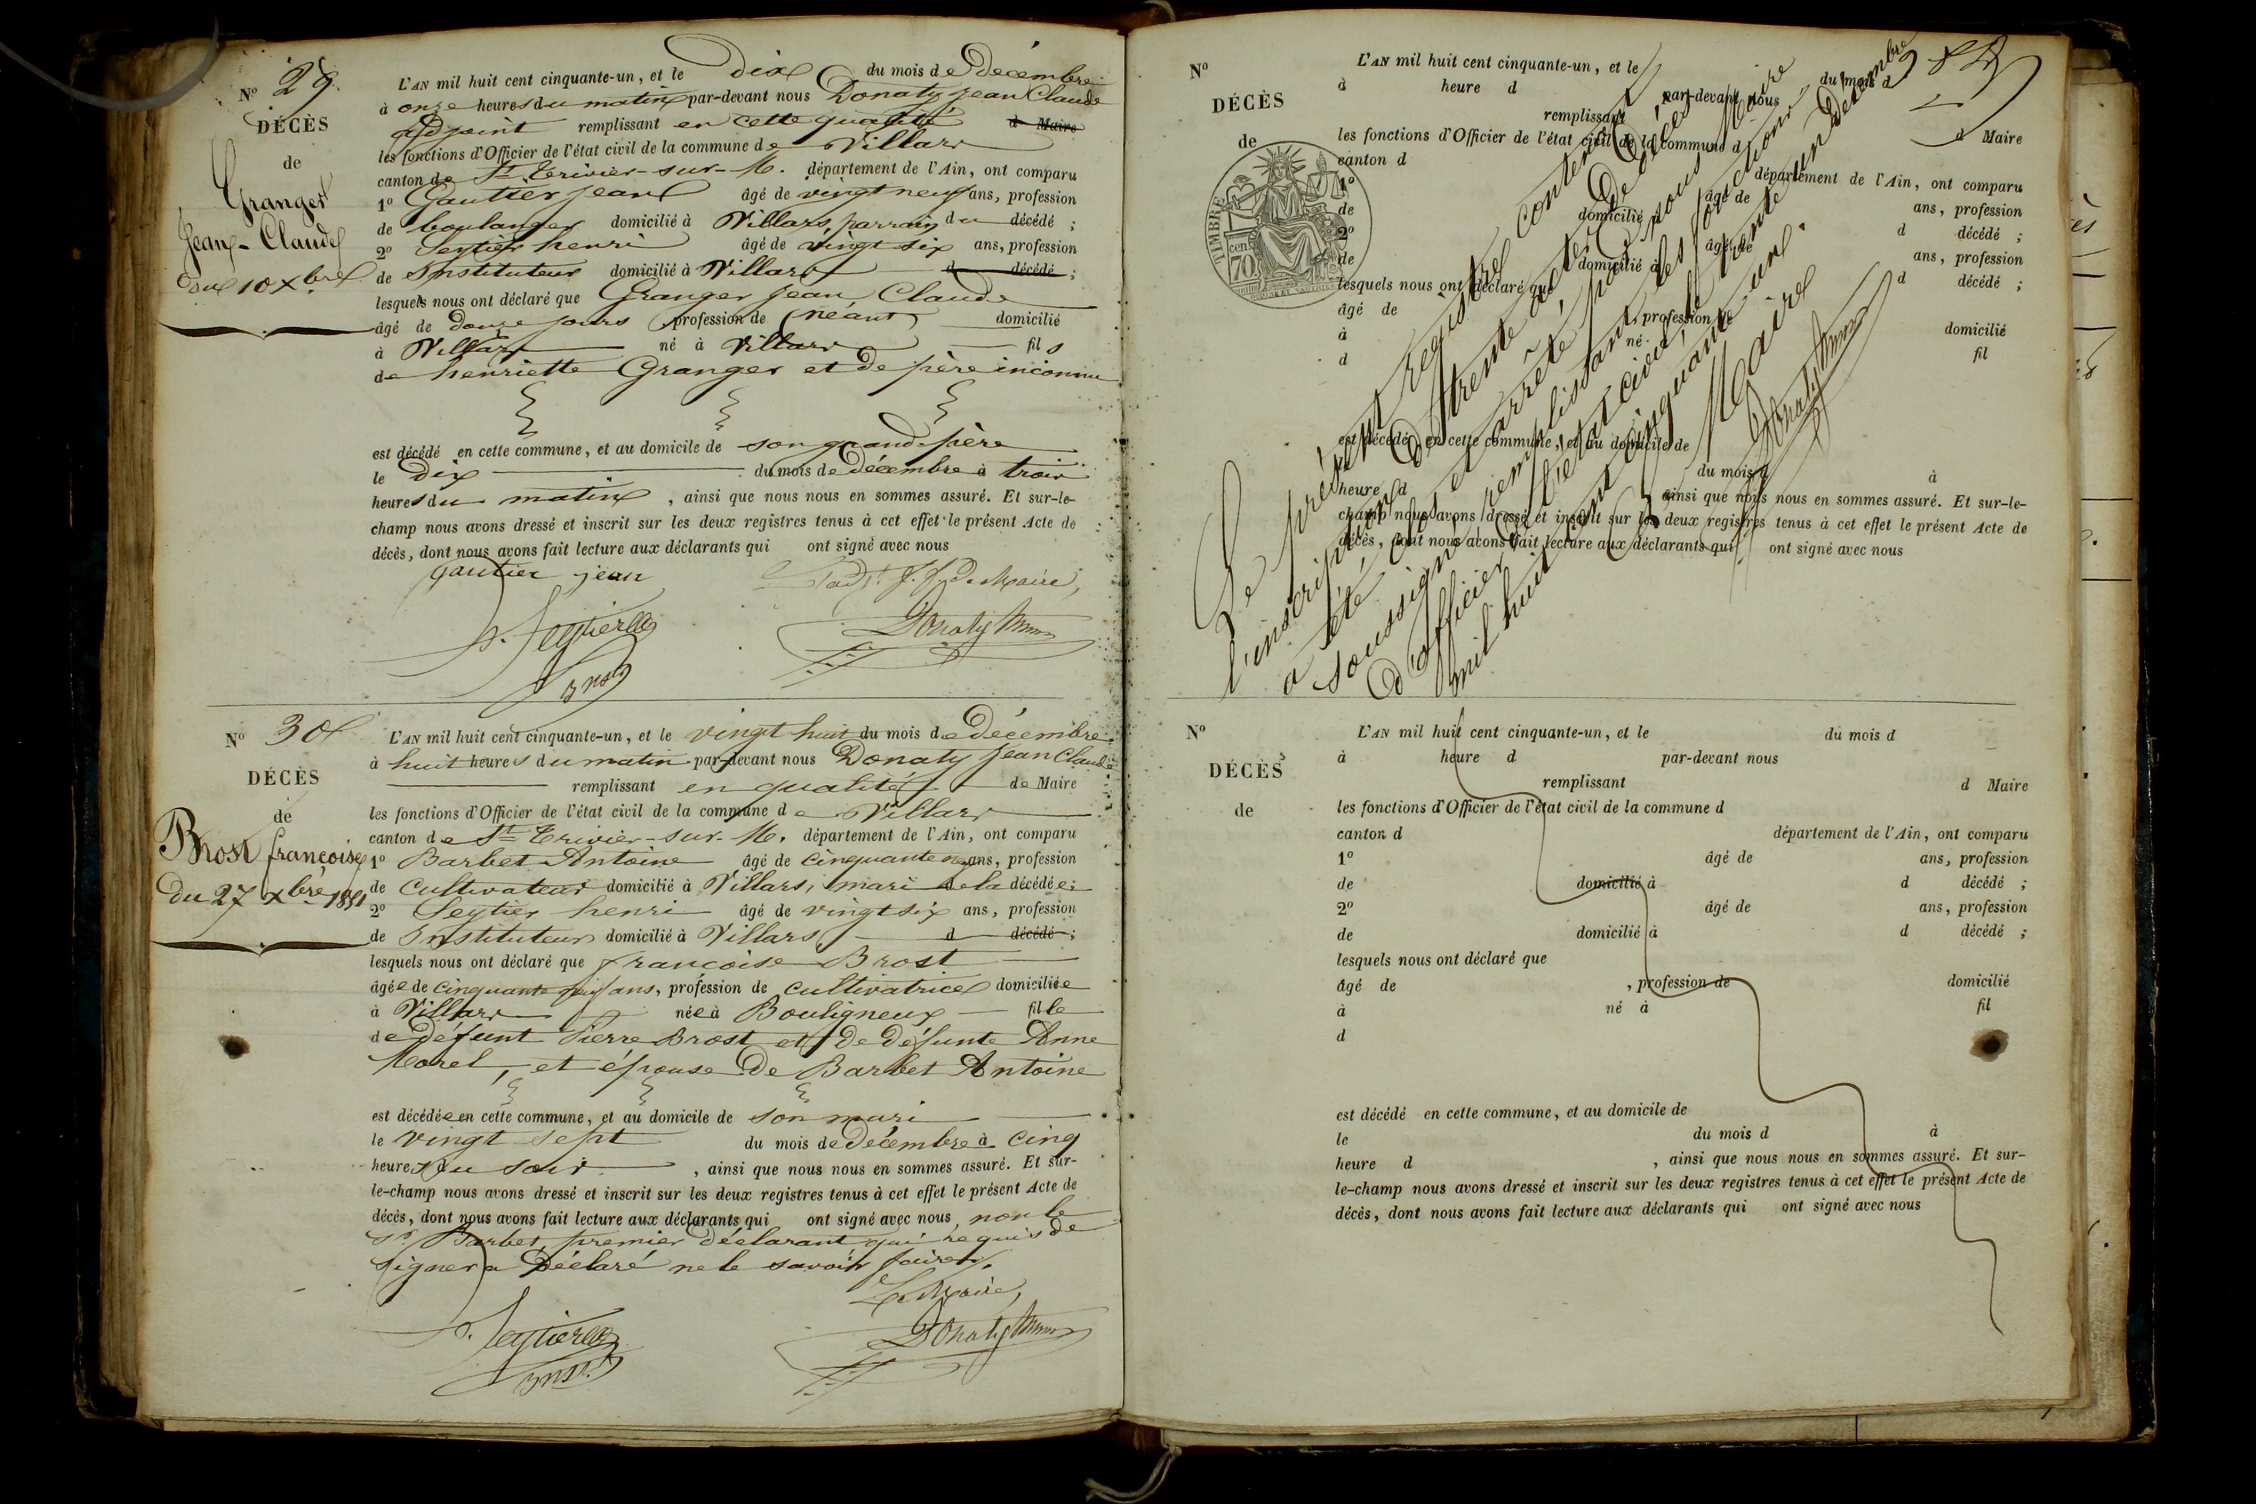 N° 29.
DÉCÈS
de
Granger
Jean-Claude
du 10 Xbre
L'AN mil huit cent cinquante-un, et le dix du mois de Décembre
à onze heures du matin par-devant nous Donaty Jean Claude
adjoint remplissant en cette qualité d Maire
les fonctions d'Officier de l'état civil de la commune de Villars
canton de St Trivier-sur-M. département de l'Ain, ont comparu
1° Gautier Jean âgé de vingt neuf ans, profession
de boulanger domicilié à Villars, parrain du décédé ;
2° Seytier henri âgé de vingt six ans, profession
de Instituteur domicilié à Villars d décédé ;
lesquels nous ont déclaré que Granger Jean, Claude
âgé de douze jours profession de néant domicilié
à Villars né à Villars fils
de henriette Granger et de père inconnu
est décédé en cette commune, et au domicile de son grand-père
le dix du mois de Décembre à trois
heures du matin, ainsi que nous nous en sommes assuré. Et sur-le-
champ nous avons dressé et inscrit sur les deux registres tenus à cet effet le présent Acte de
décès, dont nous avons fait lecture aux déclarants qui ont signé avec nous
gautier jean
Maire,
h. Seytier
Donaty
N° 30
DÉCÈS
de
Brost françoise
du 27 Xbre 1851
L'AN mil huit cent cinquante-un, et le vingt huit du mois de Décembre
à huit heures du matin par-devant nous Donaty Jean Claude
remplissant en qualité de Maire
les fonctions d'Officier de l'état civil de la commune de Villars
canton de St Trivier-sur-M. département de l'Ain, ont comparu
1° Barbet Antoine âgé de cinquante ans, profession
de Cultivateur domicilié à Villars, mari de la décédée ;
2° Seytier henri âgé de vingt six ans, profession
de Instituteur domicilié à Villars d décédé ;
lesquels nous ont déclaré que françoise Brost
âgée de cinquante ans, profession de cultivatrice domiciliée
à Villars née à Bouligneux fille
de défunt Pierre Brost et de défunte Anne
Morel, et épouse de Barbet Antoine
est décédée en cette commune, et au domicile de son mari
le vingt sept du mois de Décembre à cinq
heures du soir, ainsi que nous nous en sommes assuré. Et sur-
le-champ nous avons dressé et inscrit sur les deux registres tenus à cet effet le présent Acte de
décès, dont nous avons fait lecture aux déclarants qui ont signé avec nous, non le
sr Barbet premier déclarant qui requis de
signer a déclaré ne le savoir faire.
Le Maire,
h. Seytier
Donaty
inst.
N°
DÉCÈS
de
TIMBRE
70 cen
L'AN mil huit cent cinquante-un, et le du mois d
à heure d par-devant nous
remplissant d Maire
les fonctions d'Officier de l'état civil de la commune d
canton d département de l'Ain, ont comparu
1° âgé de ans, profession
de domicilié à d décédé ;
2° âgé de ans, profession
de domicilié à d décédé ;
lesquels nous ont déclaré que
âgé de , profession de domicilié
à né à fil
d
est décédé en cette commune, et au domicile de
du mois d à
heure d ainsi que nous nous en sommes assuré. Et sur-le-
champ nous avons dressé et inscrit sur les deux registres tenus à cet effet le présent Acte de
décès, dont nous avons fait lecture aux déclarants qui ont signé avec nous
Le présent registre contenant
l'inscription de trente actes de décès
a été clos et arrêté par nous Maire
soussigné remplissant les fonctions
d'officier de l'état civil, le trente un Décembre
mil huit cent cinquante un.
Le Maire
Donaty
N°
DÉCÈS
de
L'AN mil huit cent cinquante-un, et le du mois d
à heure d par-devant nous
remplissant d Maire
les fonctions d'Officier de l'état civil de la commune d
canton d département de l'Ain, ont comparu
1° âgé de ans, profession
de domicilié à d décédé ;
2° âgé de ans, profession
de domicilié à d décédé ;
lesquels nous ont déclaré que
âgé de , profession de domicilié
à né à fil
d
est décédé en cette commune, et au domicile de
le du mois d à
heure d , ainsi que nous nous en sommes assuré. Et sur-
le-champ nous avons dressé et inscrit sur les deux registres tenus à cet effet le présent Acte de
décès, dont nous avons fait lecture aux déclarants qui ont signé avec nous